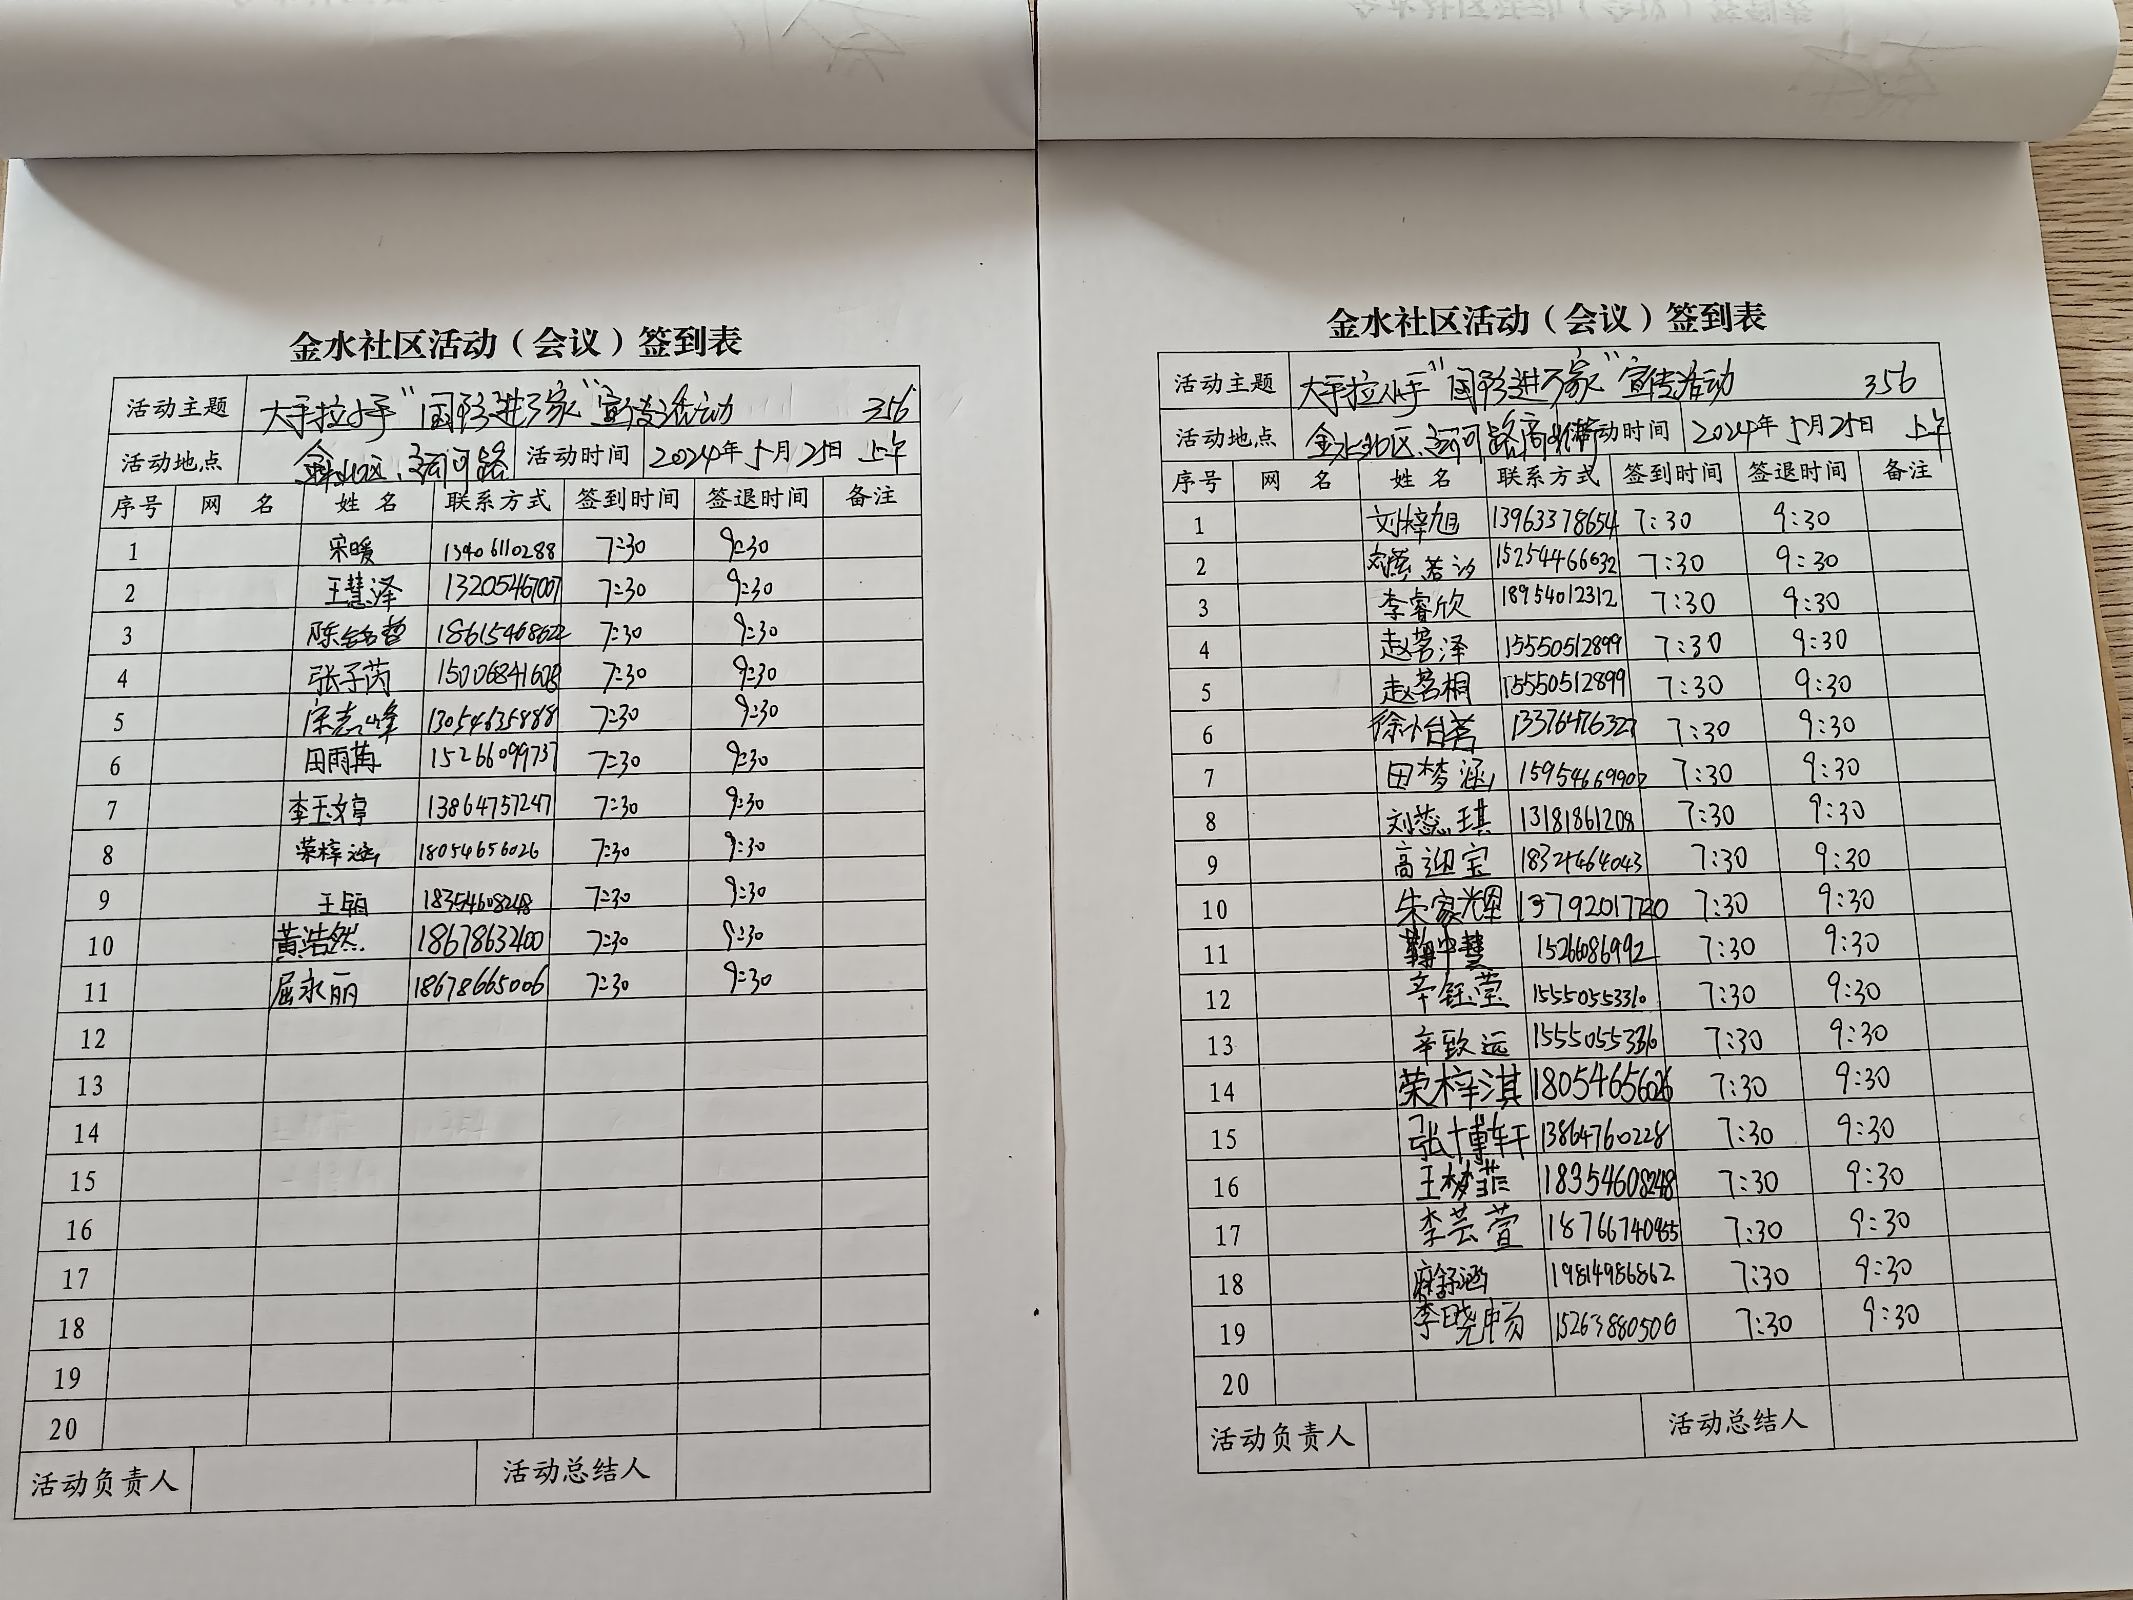 金水社区活动（会议）签到表
活动主题 大手拉小手"国彩进万家"宣传活动 356
活动地点 金水社区、运河路 活动时间 2024年5月25日 上午
序号 网 名 姓 名 联系方式 签到时间 签退时间 备注
1 宋暖 13406110288 7:30 9:30
2 王慧泽 13205467007 7:30 9:30
3 陈铭哲 18615468622 7:30 9:30
4 张子芮 15006841608 7:30 9:30
5 宋志峰 13054635888 7:30 9:30
6 田雨苒 15266099737 7:30 9:30
7 李玉婷 13864757247 7:30 9:30
8 荣梓涵 18054656026 7:30 9:30
9 王娟 18354608248 7:30 9:30
10 黄浩然 18678632400 7:30 9:30
11 屈永丽 18678665006 7:30 9:30
12
13
14
15
16
17
18
19
20
活动负责人 活动总结人
金水社区活动（会议）签到表
活动主题 大手拉小手"国彩进万家"宣传活动 356
活动地点 金水社区、运河路商业街 活动时间 2024年5月25日 上午
序号 网 名 姓 名 联系方式 签到时间 签退时间 备注
1 刘梓旭 13963378654 7:30 9:30
2 若汐 15254466632 7:30 9:30
3 李睿欣 18954012312 7:30 9:30
4 赵茗泽 15550512899 7:30 9:30
5 赵茗桐 15550512899 7:30 9:30
6 徐怡茗 13376476327 7:30 9:30
7 田梦涵 15954669902 7:30 9:30
8 刘蕊琪 13181861208 7:30 9:30
9 高迎宝 18321464043 7:30 9:30
10 朱家耀 13792017720 7:30 9:30
11 15266086992 7:30 9:30
12 辛钰莹 15550553310 7:30 9:30
13 辛致远 15550553310 7:30 9:30
14 荣梓淇 18054656026 7:30 9:30
15 张博轩 13864760228 7:30 9:30
16 王梦菲 18354608248 7:30 9:30
17 李芸萱 18766740855 7:30 9:30
18 麻舒涵 19814986862 7:30 9:30
19 李晓畅 15263880506 7:30 9:30
20
活动负责人 活动总结人